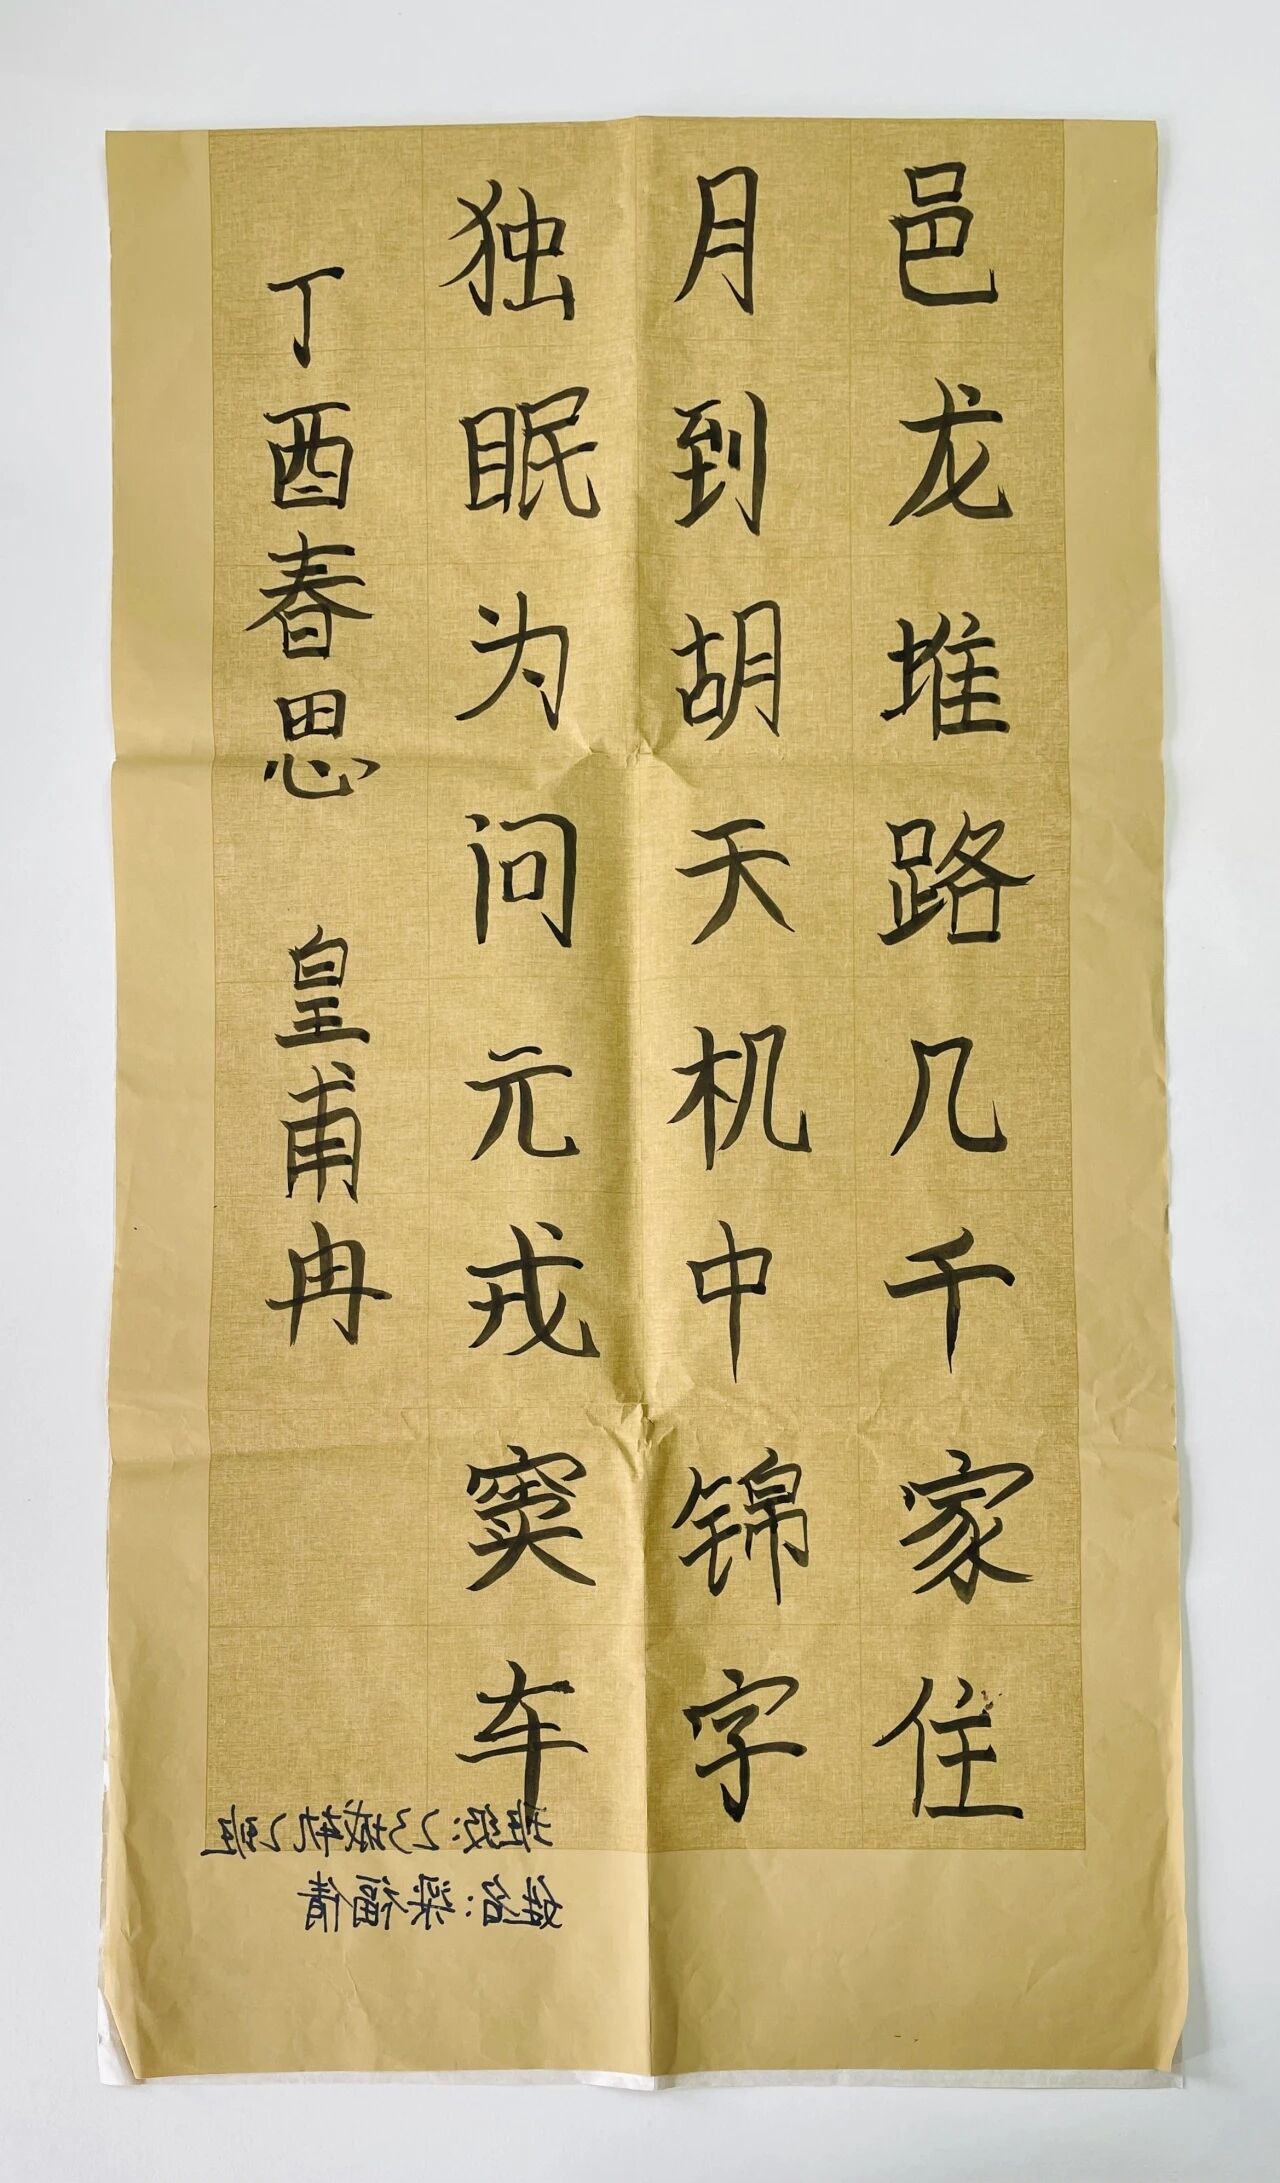 邑龙堆路几千家住
月到胡天机中锦字
独眠为问元戎窦车
丁酉春思 皇甫冉
班级:23城轨2班
姓名:梁福倩